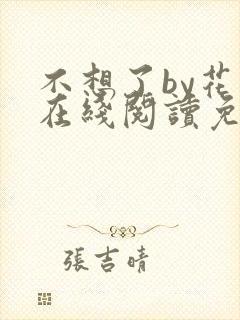 不想了by花
在綫閱讀免
張吉晴